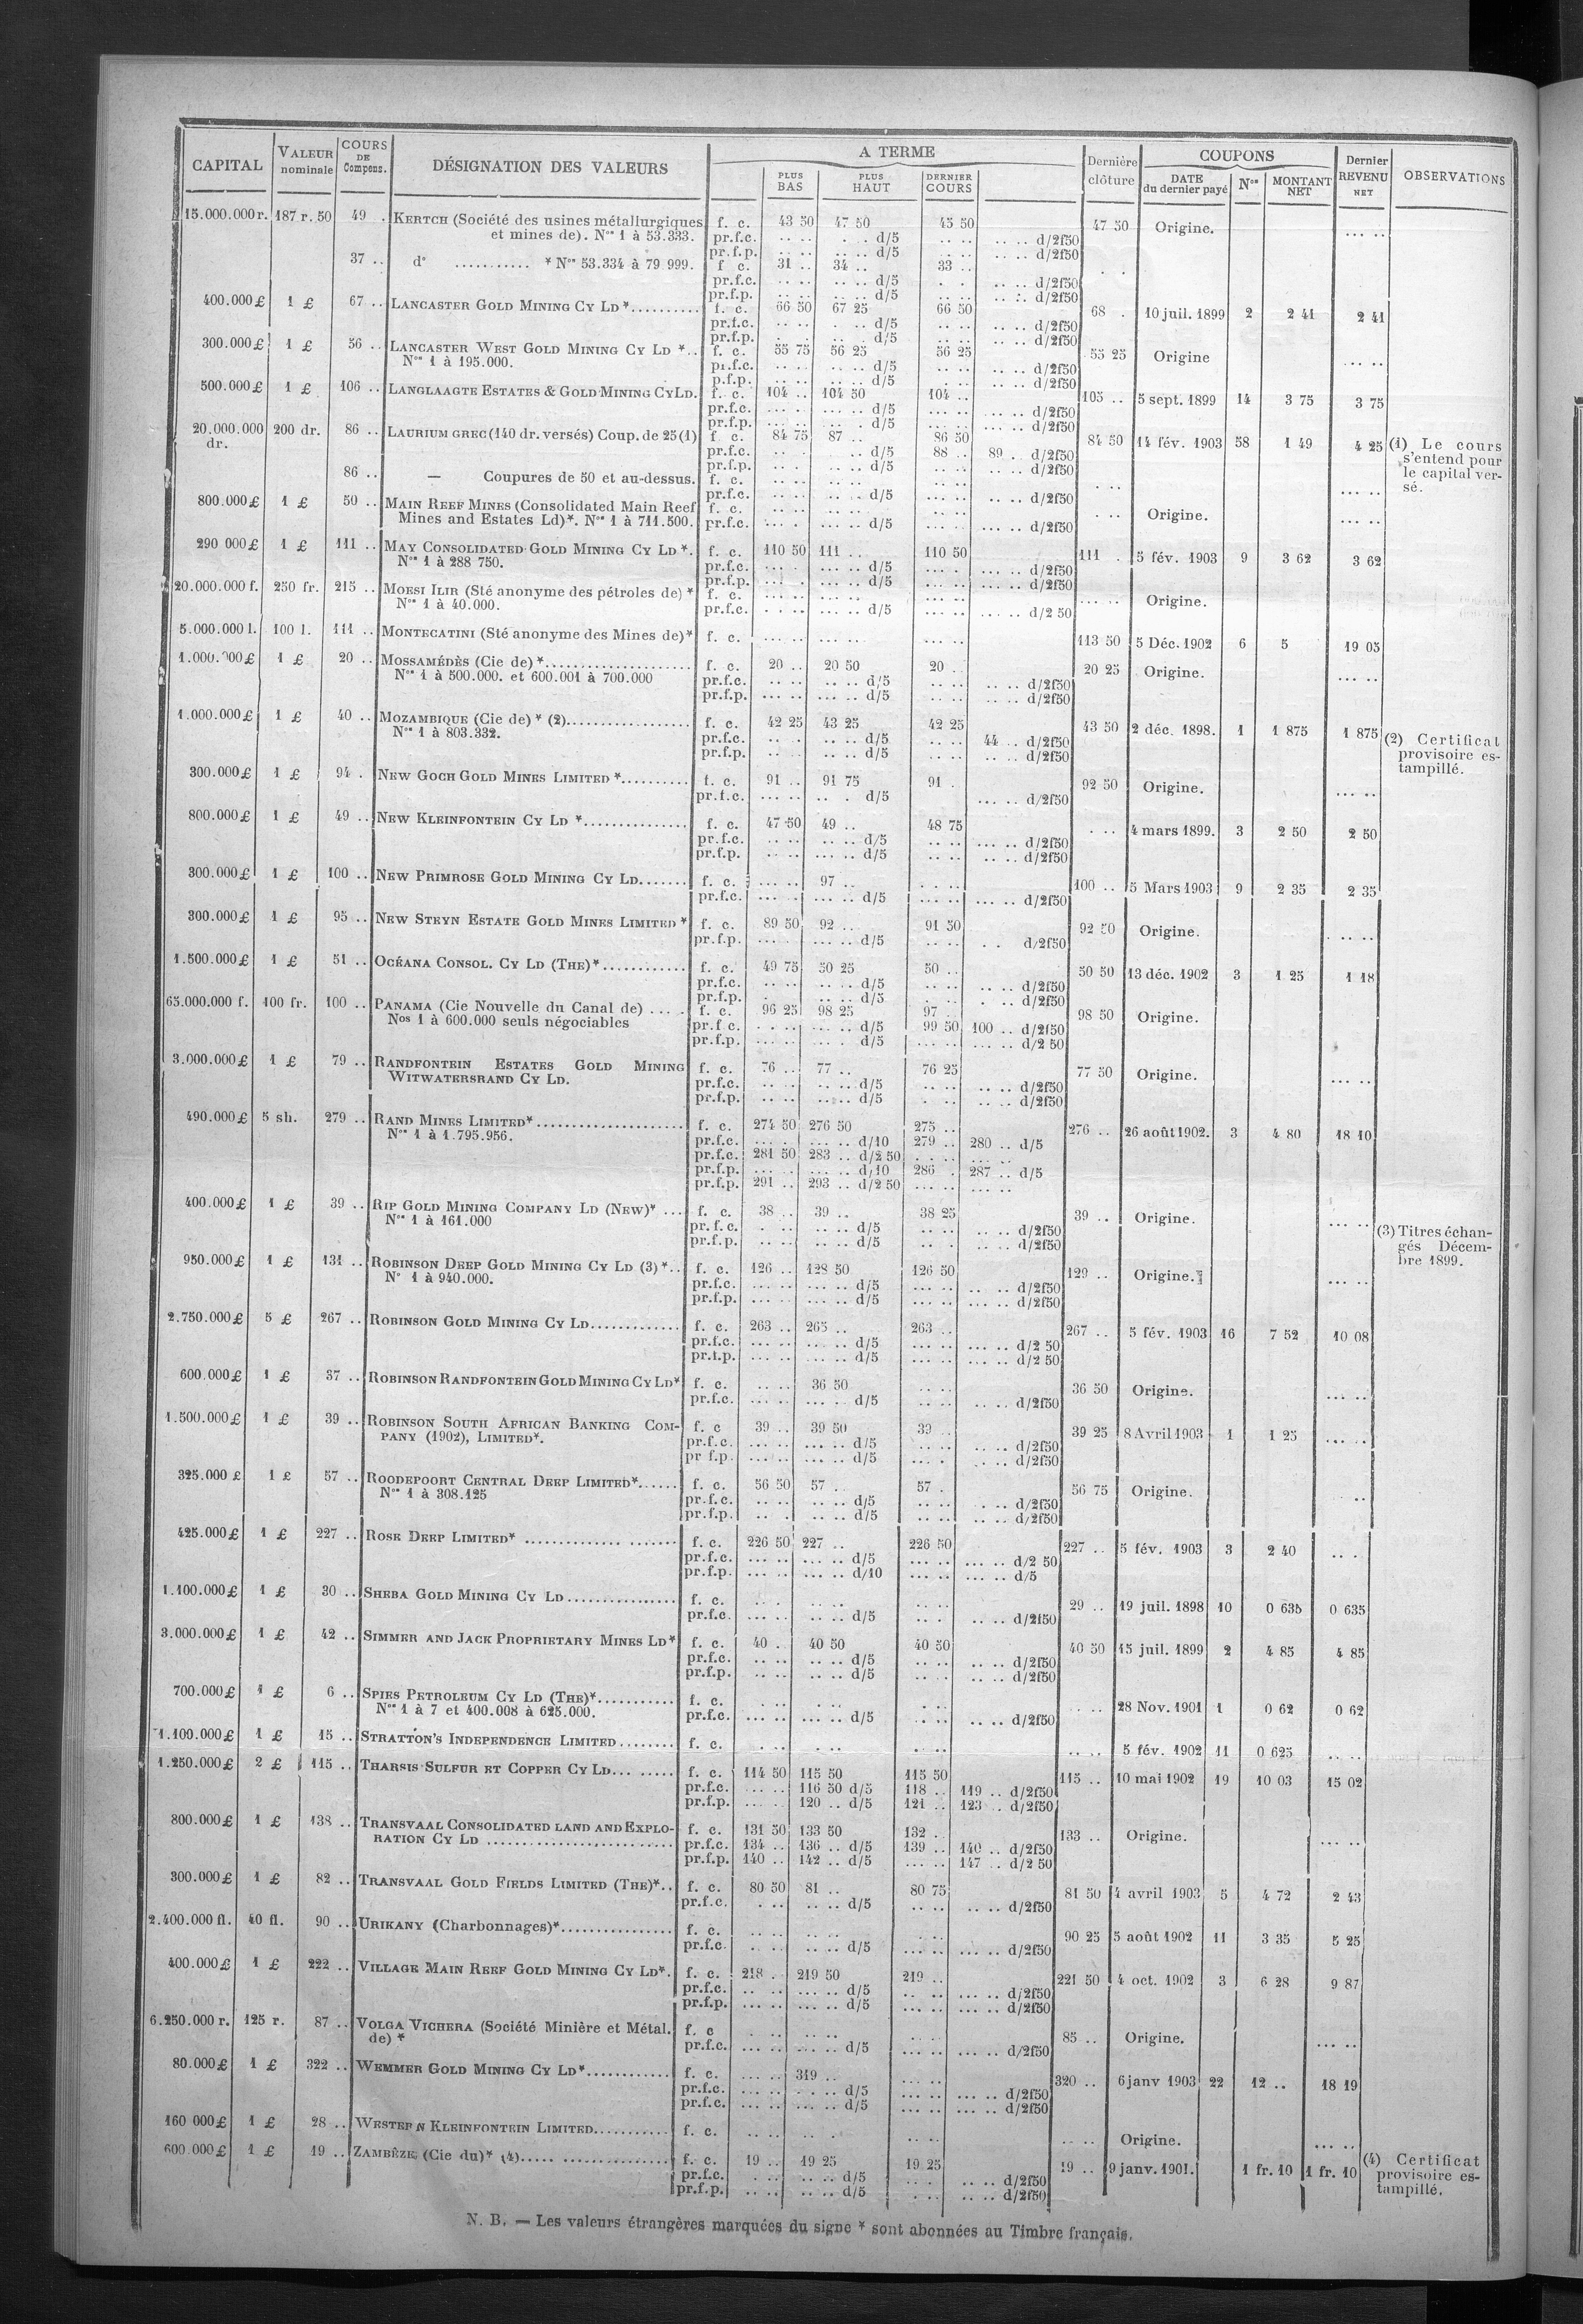 CAPITAL | VALEUR nominale | COURS DE Compens. | DÉSIGNATION DES VALEURS | A TERME | PLUS BAS | PLUS HAUT | DERNIER COURS | Dernière clôture | COUPONS | DATE du dernier payé | Nos | MONTANT NET | Dernier REVENU NET | OBSERVATIONS
15.000.000 r. 187 r. 50 49 . KERTCH (Société des usines métallurgiques f. c. 43 50 47 50 45 50 47 50 Origine. .. .. ..
et mines de). Nos 1 à 53.333. pr.f.c. .. .. . . d/5 .. .. .. .. d/2f50
pr.f.p. .. .. .. .. d/5 .. .. .. .. d/2f50
37 .. d° ........... * Nos 53.334 à 79 999. f c. 31 .. 34 .. 33 ..
pr.f.c. .. .. .. .. d/5 . . .. .. d/2f50
pr.f.p. .. .. .. .. d/5 .. .. .. .. d/2f50
400.000 £ 1 £ 67 .. LANCASTER GOLD MINING CY LD *.......... f. c. 66 50 67 25 66 50 68 . 10 juil. 1899 2 2 41 2 41
pr.f.c. .. .. . .. d/5 .. .. .. .. d/2f50
pr.f.p. . . .. .. d/5 .. .. .. .. d/2f50
300.000 £ 1 £ 56 .. LANCASTER WEST GOLD MINING CY LD *.. f. c. 55 75 56 25 56 25 55 25 Origine
Nos 1 à 195.000. pr.f.c. .. .. .. .. d/5 .. .. .. .. d/2f50
p.f.p. .. .. .. .. d/5 . .. .. .. d/2f50
500.000 £ 1 £ 106 .. LANGLAAGTE ESTATES & GOLD MINING CY LD. f. c. 104 .. 104 50 104 .. 105 .. 5 sept. 1899 14 3 75 3 75
pr.f.c. ... . ... .. d/5 ... .. ... .. d/2f50
pr.f.p. ... .. . d/5 ... .. ... .. d/2f50
20.000.000 dr. 200 dr. 86 .. LAURIUM GREC (140 dr. versés) Coup. de 25 (1) f c. 84 75 87 .. 86 50 84 50 14 fév. 1903 58 1 49 4 25 (1) Le cours s'entend pour le capital versé.
pr.f.c. .. . .. d/5 88 .. 89 . d/2f50
pr.f.p. .. . .. .. d/5 .. .. .. .. d/2f50
86 .. — Coupures de 50 et au-dessus. f. c. .. .. .. .. .. ..
pr.f.c. .. .. .. . d/5 ... .. .. .. d/2f50
800.000 £ 1 £ 50 .. MAIN REEF MINES (Consolidated Main Reef f. c. .. .. .. .. .. .. Origine.
Mines and Estates Ld)*. Nos 1 à 711.500. pr.f.c. ... . ... .. d/5 ... .. ... .. d/2f50
290 000 £ 1 £ 111 .. MAY CONSOLIDATED GOLD MINING CY LD *. f. c. 110 50 111 .. 110 50 111 . 5 fév. 1903 9 3 62 3 62
Nos 1 à 288 750. pr.f.c. ... . ... .. d/5 ... . ... .. d/2f50
pr.f.p. ... . ... .. d/5 ... .. ... .. d/2f50
20.000.000 f. 250 fr. 215 .. MOESI ILIR (Sté anonyme des pétroles de) * f. c. ... .. ... .. ... .. Origine.
Nos 1 à 40.000. pr.f.c. . . .. ... .. d/5 ... .. ... .. d/2 50
5.000.000 l. 100 l. 111 .. MONTECATINI (Sté anonyme des Mines de)* f. c. ... .. ... .. ... .. 113 50 5 Déc. 1902 6 5 19 05
1.000.000 £ 1 £ 20 .. MOSSAMÉDÈS (Cie de) *..................... f. c. 20 .. 20 50 20 .. 20 25 Origine.
Nos 1 à 500.000. et 600.001 à 700.000 pr.f.c. .. .. .. .. d/5 .. .. .. .. d/2f50
pr.f.p. ... .. ... .. d/5 .. .. .. .. d/2f50
1.000.000 £ 1 £ 40 .. MOZAMBIQUE (Cie de) * (2)................. f. c. 42 25 43 25 42 25 43 50 2 déc. 1898. 1 1 875 1 875 (2) Certificat provisoire estampillé.
Nos 1 à 803.332. pr.f.c. .. . .. .. d/5 .. .. 44 .. d/2f50
pr.f.p. .. . .. .. d/5 .. .. .. .. d/2f50
300.000 £ 1 £ 94 . NEW GOCH GOLD MINES LIMITED *.......... f. c. 91 .. 91 75 91 . 92 50 Origine.
pr.f.c. ... .. .. . d/5 ... .. d/2f50
800.000 £ 1 £ 49 .. NEW KLEINFONTEIN CY LD *............... f. c. 47 50 49 .. 48 75 . .. 4 mars 1899. 3 2 50 2 50
pr.f.c. .. .. .. .. d/5 .. .. ... .. d/2f50
pr.f.p. .. .. ... .. d/5 .. .. .. .. d/2f50
300.000 £ 1 £ 100 .. NEW PRIMROSE GOLD MINING CY LD....... f. c. ... .. 97 .. . . .. 100 .. 5 Mars 1903 9 2 35 2 35
pr.f.c. ... . ... .. d/5 ... .. ... .. d/2f50
300.000 £ 1 £ 95 .. NEW STEYN ESTATE GOLD MINES LIMITED * f. c. 89 50 92 .. 91 50 92 50 Origine.
pr.f.p. ... . ... .. d/5 .. .. . . d/2f50
1.500.000 £ 1 £ 51 .. OCÉANA CONSOL. CY LD (THE) *............ f. c. 49 75 50 25 50 .. 50 50 13 déc. 1902 3 1 25 1 18
pr.f.c. .. .. .. .. d/5 .. .. .. .. d/2f50
pr.f.p. . .. .. d/5 . .. . .. d/2f50
65.000.000 f. 100 fr. 100 .. PANAMA (Cie Nouvelle du Canal de) .... . f. c. 96 25 98 25 97 .. 98 50 Origine.
Nos 1 à 600.000 seuls négociables pr.f c. . . .. ... .. d/5 99 50 100 .. d/2f50
pr.f.p. ... .. ... . d/5 ... .. ... .. d/2 50
3.000.000 £ 1 £ 79 .. RANDFONTEIN ESTATES GOLD MINING f. c. 76 .. 77 .. 76 25 77 50 Origine.
WITWATERSRAND CY LD. pr.f.c. .. .. .. .. d/5 .. .. .. .. d/2f50
pr.f.p. .. .. .. .. d/5 . .. .. .. d/2f50
490.000 £ 5 sh. 279 .. RAND MINES LIMITED*..................... f. c. 274 50 276 50 275 .. 276 .. 26 août 1902. 3 4 80 18 10
Nos 1 à 1.795.956. pr.f.c. ... . ... .. d/10 279 .. 280 .. d/5
pr.f.c. 281 50 283 .. d/2 50 . . ..
pr.f.p. ... .. ... .. d/10 286 . 287 .. d/5
pr.f.p. 291 .. 293 .. d/2 50 ... .. ... ..
400.000 £ 1 £ 39 .. RIP GOLD MINING COMPANY LD (NEW)* ... f. c. 38 .. 39 .. 38 25 39 .. Origine.
Nos 1 à 161.000 pr.f.c. . .. .. .. d/5 .. .. .. .. d/2f50
pr.f.p. .. .. .. .. d/5 .. . .. .. d/2f50
950.000 £ 1 £ 131 .. ROBINSON DEEP GOLD MINING CY LD (3) *.. f. c. 126 .. 128 50 126 50 129 .. Origine. (3) Titres échangés Décembre 1899.
N° 1 à 940.000. pr.f.c. ... .. ... .. d/5 ... .. .. .. d/2f50
pr.f.p. ... .. ... .. d/5 ... .. ... .. d/2f50
2.750.000 £ 5 £ 267 .. ROBINSON GOLD MINING CY LD............. f. c. 263 .. 265 .. 263 .. 267 .. 5 fév. 1903 16 7 52 10 08
pr.f.c. ... .. ... .. d/5 ... .. ... .. d/2 50
pr.f.p. ... .. ... .. d/5 ... .. ... .. d/2 50
600.000 £ 1 £ 37 .. ROBINSON RANDFONTEIN GOLD MINING CY LD* f. c. .. .. 36 50 .. .. 36 50 Origine.
pr.f.c. ... .. ... . d/5 .. .. d/2f50
1.500.000 £ 1 £ 39 .. ROBINSON SOUTH AFRICAN BANKING COM- f. c 39 .. 39 50 39 .. 39 25 8 Avril 1903 1 1 25 ... ..
PANY (1902), LIMITED*. pr.f.c. ... .. ... .. d/5 .. .. .. .. d/2f50
pr f.p. ... .. ... .. d/5 ... . . .. d/2f50
325.000 £ 1 £ 57 .. ROODEPOORT CENTRAL DEEP LIMITED*...... f. c. 56 50 57 .. 57 . 56 75 Origine.
Nos 1 à 308.125 pr.f.c. .. .. .. .. d/5 .. .. . .. d/2f50
pr.f.p. .. . .. .. d/5 .. .. .. .. d/2f50
425.000 £ 1 £ 227 .. ROSE DEEP LIMITED* ............... ....... f. c. 226 50 227 .. 226 50 227 .. 5 fév. 1903 3 2 40 .. .
pr.f.c. ... .. ... .. d/5 ... .. ... .. d/2 50
pr.f.p. ... .. ... .. d/10 ... .. ... .. d/5
1.100.000 £ 1 £ 30 .. SHEBA GOLD MINING CY LD................ f. c. .. . .. .. .. .. 29 .. 19 juil. 1898 10 0 635 0 635
pr.f.c. ... .. .. .. d/5 .. . .. .. d/2f50
3.000.000 £ 1 £ 42 .. SIMMER AND JACK PROPRIETARY MINES LD* f. c. 40 . 40 50 40 50 40 50 15 juil. 1899 2 4 85 4 85
pr.f.c. .. .. .. .. d/5 .. .. .. .. d/2f50
pr.f.p. .. .. .. .. d/5 .. . .. .. d/2f50
700.000 £ 1 £ 6 .. SPIES PETROLEUM CY LD (THE)*........... f. c. . .. . .. . .. .. .. 28 Nov. 1901 1 0 62 0 62
Nos 1 à 7 et 400.008 à 625.000. pr.f.c. ... .. ... .. d/5 .. .. .. .. d/2f50
1.100.000 £ 1 £ 15 .. STRATTON'S INDEPENDENCE LIMITED........ f. c. . .. . .. .. .. .. .. 5 fév. 1902 11 0 625 .. ..
1.250.000 £ 2 £ 115 .. THARSIS SULFUR ET COPPER CY LD... ...... f. c. 114 50 115 50 115 50 115 .. 10 mai 1902 19 10 03 15 02
pr.f.c. ... .. 116 50 d/5 118 .. 119 .. d/2f50
pr.f.p. ... . 120 .. d/5 121 .. 123 .. d/2f50
800.000 £ 1 £ 138 .. TRANSVAAL CONSOLIDATED LAND AND EXPLO- f. c. 131 50 133 50 132 .. 133 .. Origine.
RATION CY LD ........................... pr.f.c. 134 .. 136 .. d/5 139 .. 140 .. d/2f50
pr.f.p. 140 .. 142 .. d/5 ... .. 147 .. d/2 50
300.000 £ 1 £ 82 .. TRANSVAAL GOLD FIELDS LIMITED (THE)*.. f. c. 80 50 81 .. 80 75 81 50 4 avril 1903 5 4 72 2 43
pr.f.c. . .. .. .. d/5 .. .. .. .. d/2f50
2.400.000 fl. 40 fl. 90 .. URIKANY (Charbonnages)*................ f. c. .. .. .. .. . .. 90 25 5 août 1902 11 3 35 5 25
pr.f.c. . .. .. .. d/5 ... .. ... .. d/2f50
400.000 £ 1 £ 222 .. VILLAGE MAIN REEF GOLD MINING CY LD*. f. c. 218 .. 219 50 219 .. 221 50 4 oct. 1902 3 6 28 9 87
pr.f.c. .. .. ... .. d/5 .. .. ... .. d/2f50
pr.f.p. ... .. ... .. d/5 ... .. ... .. d/2f50
6.250.000 r. 125 r. 87 .. VOLGA VICHERA (Société Minière et Métal. f. c . .. .. .. .. . 85 .. Origine.
de) * pr.f.c. ... .. ... .. d/5 ... .. ... .. d/2f50
80.000 £ 1 £ 322 .. WEMMER GOLD MINING CY LD*............ f. c. ... .. 319 .. ... .. 320 .. 6 janv 1903 22 12 .. 18 19
pr.f.c. ... .. . . .. d/5 ... .. ... .. d/2f50
pr.f.c. ... .. ... .. d/5 ... .. ... .. d/2f50
160 000 £ 1 £ 28 .. WESTERN KLEINFONTEIN LIMITED........... f. c. .. .. .. . .. .. .. .. Origine.
600.000 £ 1 £ 19 .. ZAMBÈZE (Cie du)* (4)..... ................ f. c. 19 .. 19 25 19 25 19 .. 9 janv. 1901. 1 fr. 10 1 fr. 10 (4) Certificat provisoire estampillé.
pr.f.c. . .. .. .. d/5 .. . .. .. d/2f50
pr.f.p. .. .. .. .. d/5 . .. .. .. d/2f50
N. B. — Les valeurs étrangères marquées du signe * sont abonnées au Timbre français.